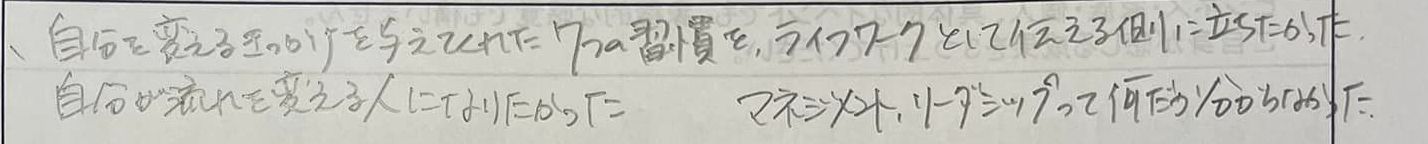 、自分を変えるきっかけを与えてくれた7つの習慣を、ライフワークとして伝える側に立ちたかった.
自分が流れを変える人になりたかった　　マネジメント、リーダシップって何だか分からなかった.